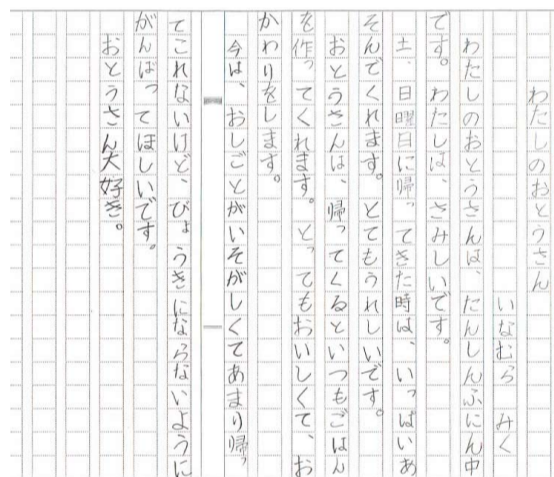 わたしのおとうさん
いなむら みく
わたしのおとうさんは、たんしんふにん中
です。わたしは、さみしいです。
土、日曜日に帰ってきた時は、いっぱいあ
そんでくれます。とてもうれしいです。
おとうさんは、帰ってくるといつもごはん
を作ってくれます。とってもおいしくて、お
かわりをします。
今は、おしごとがいそがしくてあまり帰っ
てこれないけど、びょうきにならないように
がんばってほしいです。
おとうさん大好き。